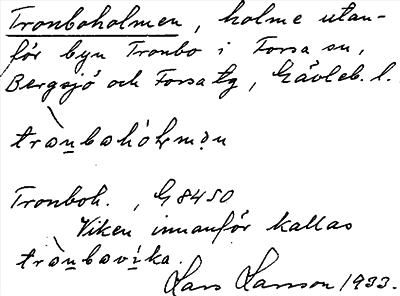 Tronboholmen, holme utan-
för byn Tronbo i Forsa sn,
Bergsjö och Forsa tg, Gävleb. l.
trònbahòḷmən
Tronboh., G 8450
Viken innanför kallas
trònbavíka.
Lars Larsson 1933.